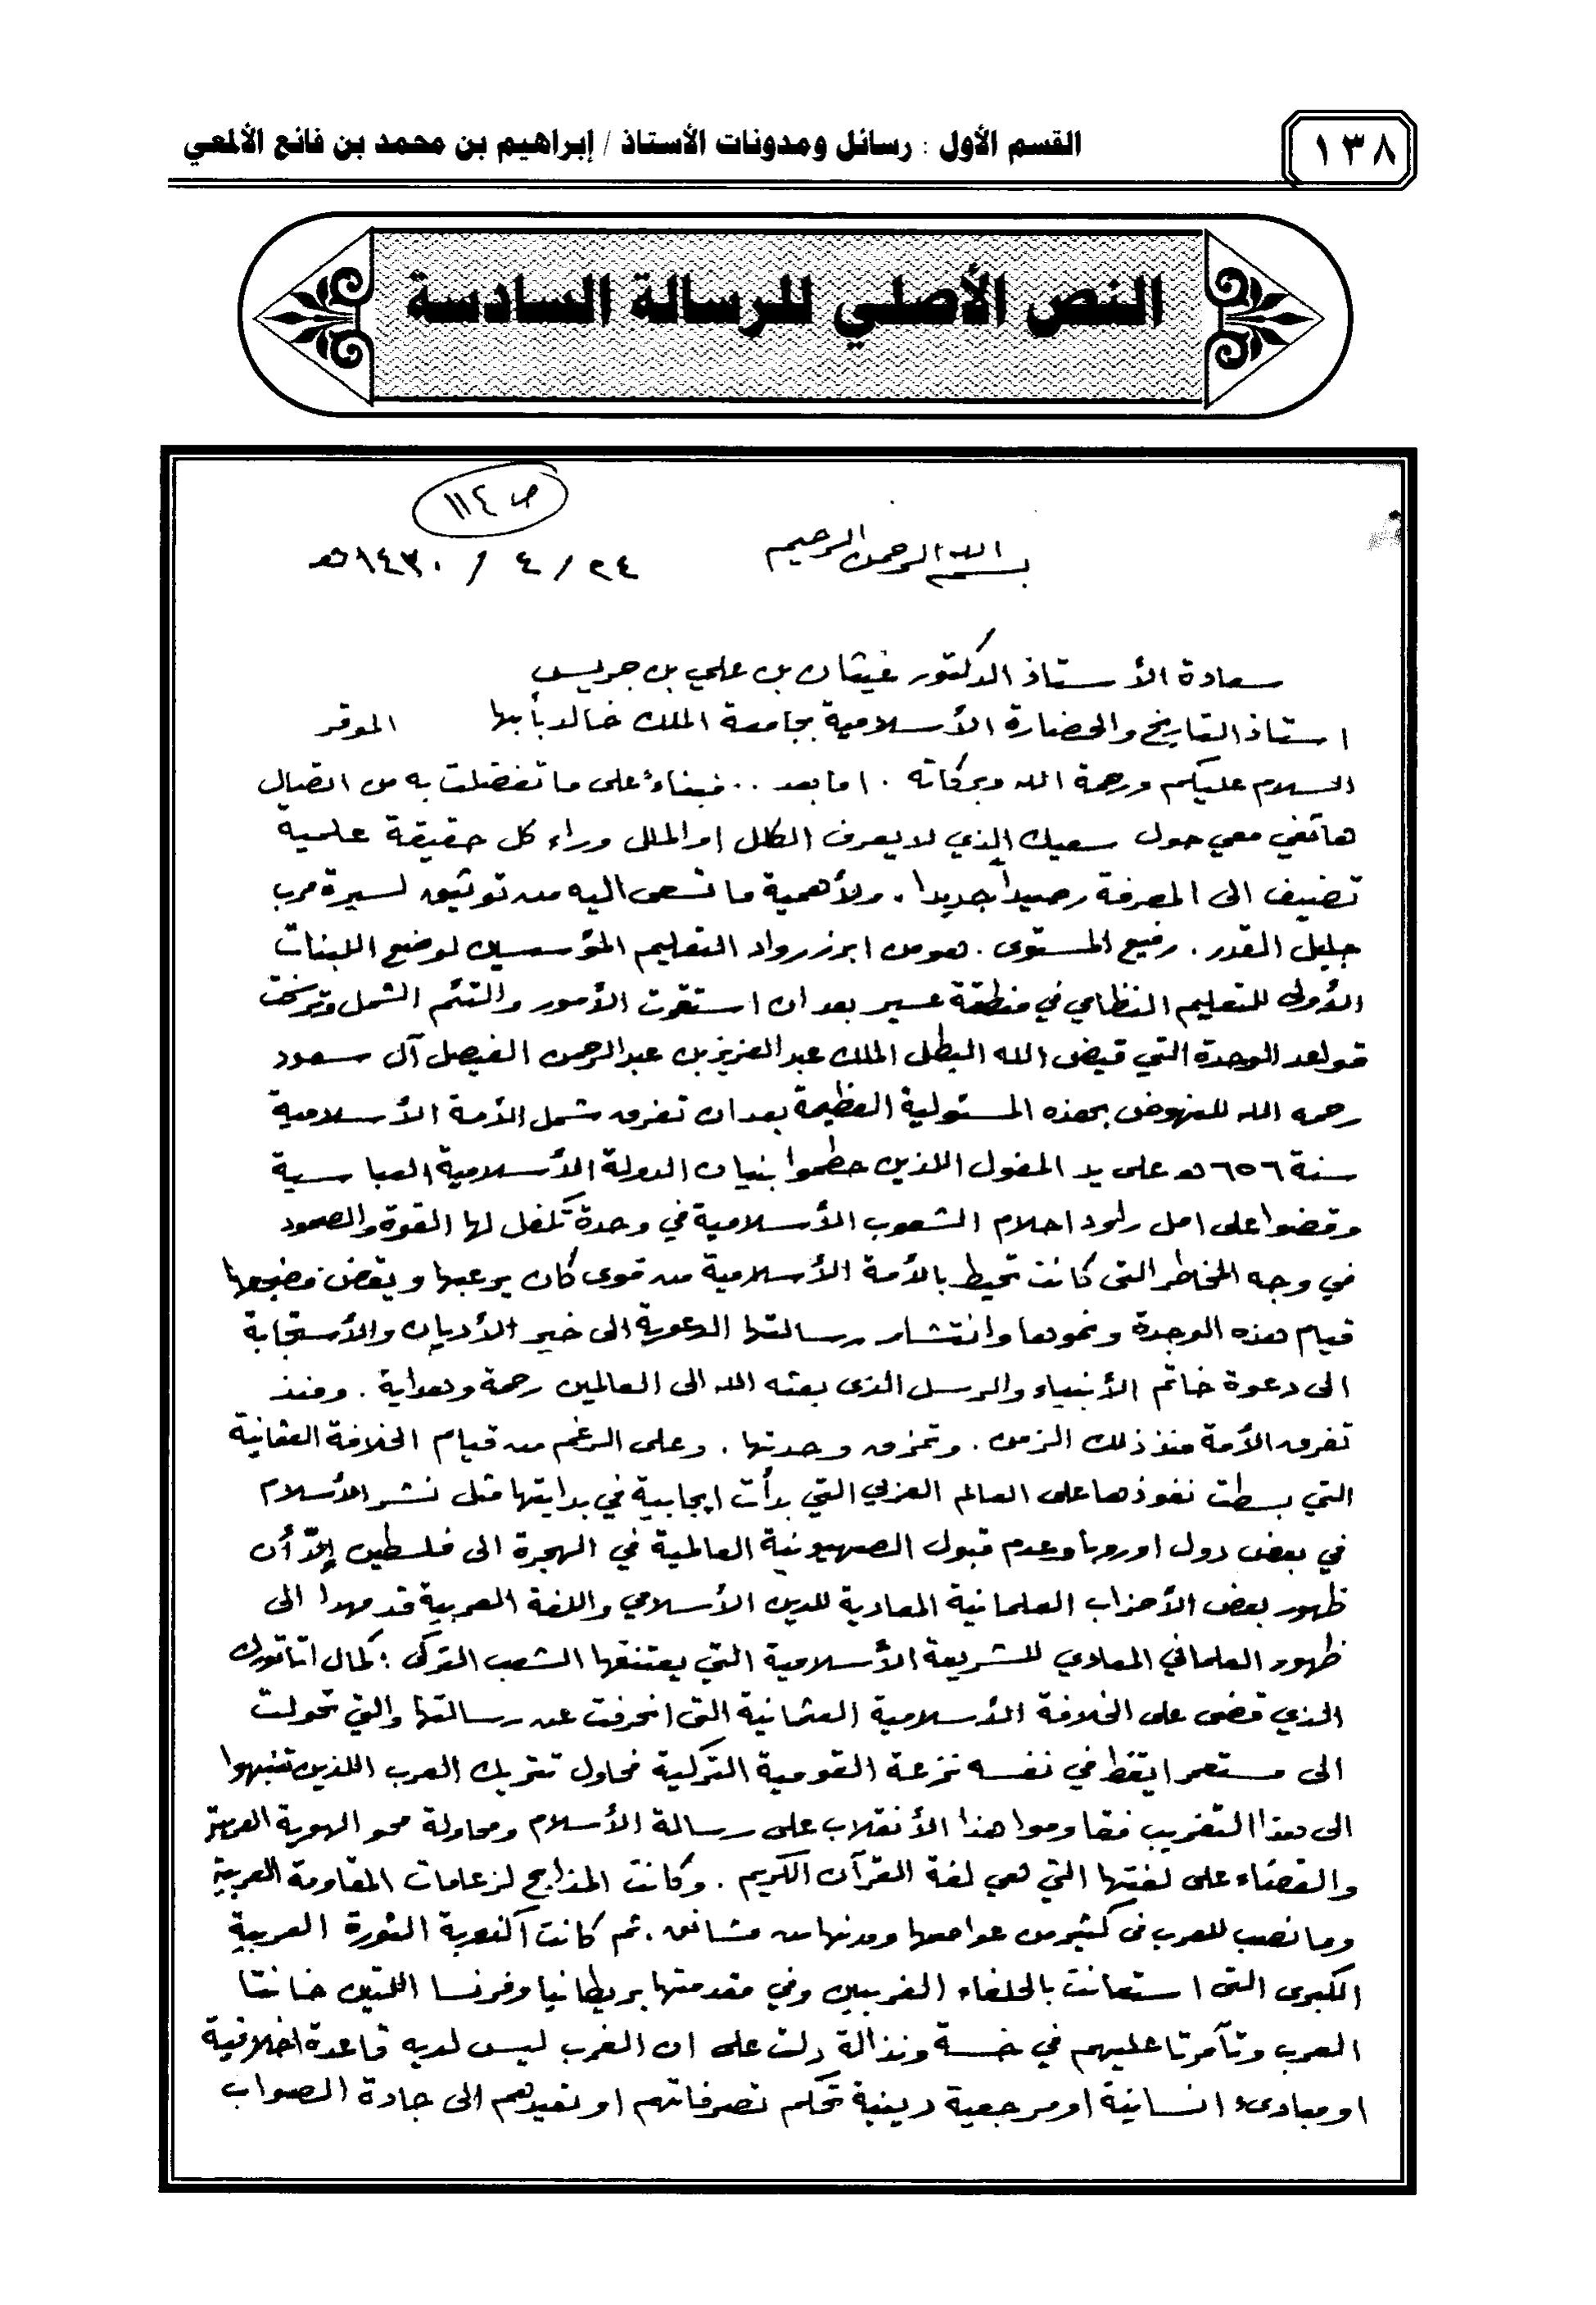 ١٣٨
القسم الأول : رسائل ومدونات الأستاذ / إبراهيم بن محمد بن فائع الألمعي
النص الأصلي للرسالة السادسة
ص ١١٤
بسم الله الرحمن الرحيم
٢٤ / ٤ / ١٤٣٠هـ
سعادة الأستاذ الدكتور غيثان بن علي بن جريس
استاذ التاريخ والحضارة الأسلامية بجامعة الملك خالد بأبها الموقر
السلام عليكم ورحمة الله وبركاته . اما بعد .. فبناءً على ما تفضلت به من اتصال
هاتفي معي حول سعيك الذي لا يعرف الكلل او الملل وراء كل حقيقة علمية
تضيف الى المعرفة رصيداً جديدا . ولأهمية ما تسعى اليه من توثيق لسيرة مرب
جليل القدر . رفيع المستوى . هو من ابرز رواد التعليم المؤسسين لوضع اللبنات
الأولى للتعليم النظامي في منطقة عسير بعد ان استقرت الأمور والتئم الشمل وترسخت
قواعد الوحدة التي قيض الله البطل الملك عبد العزيز بن عبد الرحمن الفيصل آل سعود
رحمه الله للنهوض بهذه المسئولية العظيمة بعد ان تفرق شمل الأمة الأسلامية
سنة ٦٥٦ هـ على يد المغول اللذين حطموا بنيان الدولة الأسلامية العباسية
وقضوا على امل راود احلام الشعوب الأسلامية في وحدة تكفل لها القوة والصمود
في وجه المخاطر التى كانت تحيط بالأمة الأسلامية من قوى كان يرعبها ويقض مضجعها
قيام هذه الوحدة ونموها وانتشار رسالتها الدعوية الى خير الأديان والأستجابة
الى دعوة خاتم الأنبياء والرسل الذى بعثه الله الى العالمين رحمة وهداية . ومنذ
تفرق الأمة منذ ذلك الزمن . وتمزق وحدتها . وعلى الرغم من قيام الخلافة العثمانية
التي بسطت نفوذها على العالم العربي التي بدأت ايجابية في بدايتها مثل نشر الأسلام
في بعض دول اوروبا وعدم قبول الصهيونية العالمية في الهجرة الى فلسطين إلاّ أن
ظهور بعض الأحزاب العلمانية المعادية للدين الأسلامي واللغة العربية قد مهدا الى
ظهور العلماني المعادي للشريعة الأسلامية التي يعتنقها الشعب التركى : كمال اتاتورك
الذي قضى على الخلافة الأسلامية العثمانية التى انحرفت عن رسالتها والتي تحولت
الى مستعمر ايقظ في نفسه نزعة القومية التركية فحاول تتريك العرب اللذين تنبهوا
الى هذا التغريب فقاوموا هذا الأنقلاب على رسالة الأسلام ومحاولة محو الهوية العربية
والقضاء على لغتها التي هي لغة القرآن الكريم . وكانت المذابح لزعامات المقاومة العربية
وما نصب للعرب فى كثير من عواصمها ومدنها من مشانق . ثم كانت اكذوبة الثورة العربية
الكبرى التى استعانت بالحلفاء الغربيين وفي مقدمتها بريطانيا وفرنسا اللتين خانتا
العرب وتآمرتا عليهم في خسة ونذالة دلت على ان الغرب ليس لديه قاعدة اخلاقية
او مبادىء انسانية او مرجعية دينية تحكم تصرفاتهم او تعيدهم الى جادة الصواب